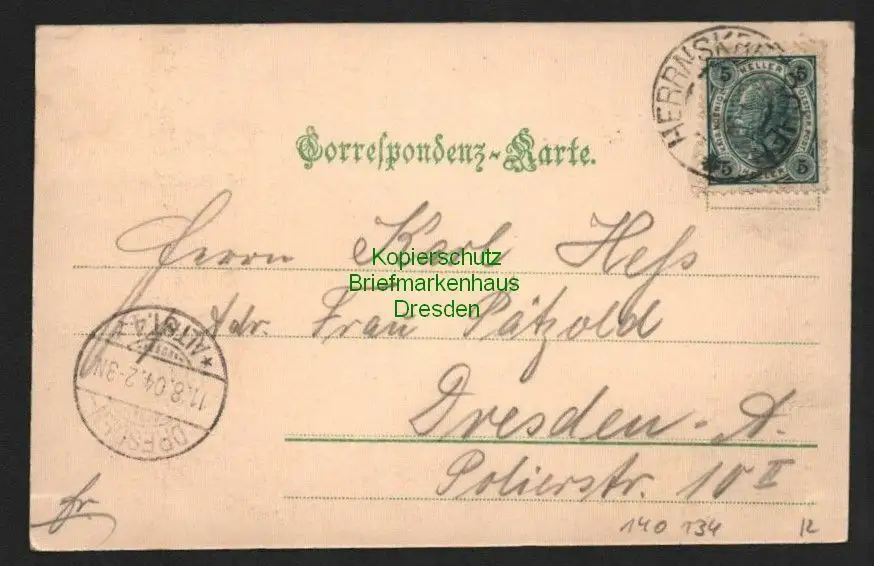 HERRNSKRETSCHEN
5 HELLER 5
5 HELLER 5
Correspondenz-Karte.
Herrn Karl Heß
Kopierschutz
Briefmarkenhaus
Dresden
Adr. Frau Pätzold
* ALTST. A *
11.8.04. 2-3N
DRESDEN
Dresden-A.
Polierstr. 10 II
fr.
140 134 12